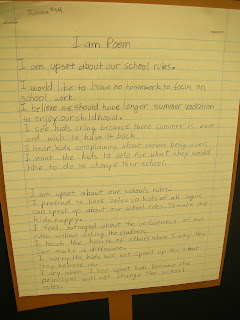 I am Poem
I am upset about our school rules.
I would like to have no homework to focus on
school work.
I believe we should have longer summer vacation
to enjoy our childhood.
I see kids crying because there summer is over
and wish to have it back.
I hear kids complaining about summer being over.
I want the kids to vote for what they would
like to do to change their school.
I am upset about our schools rules.
I pretend to hear voices so kids of all ages
can speak up about our school rules. To make the
kids happy.
I feel outraged about the unfairness of our
rules without asking the students.
I touch the hearts of others when I say they
can make a difference.
I worry the kids will not speak up for what
they believe in.
I cry when I see upset kids because the
principal will not change the school
rules.